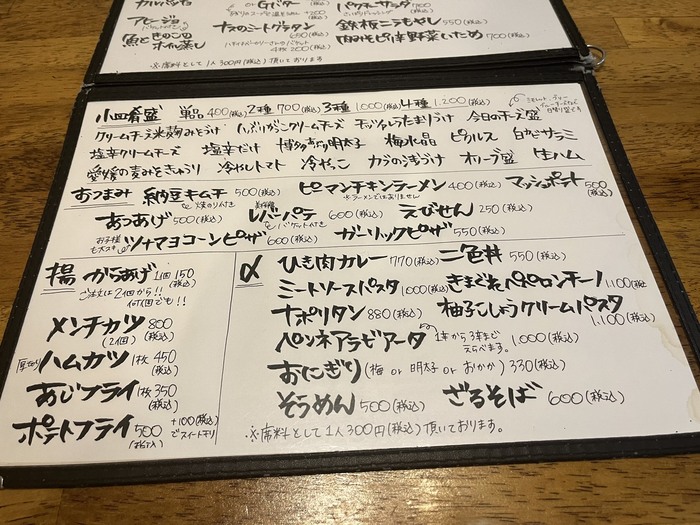 カルパッチョ or Gバター パクチーサラダ 700
アヒージョ 200(税込)
ナスのミートグラタン 650(税込) 鉄板ニラもやし 550(税込)
魚ときのこのホイル蒸し 4枚 200(税込) 肉みそピリ辛野菜いため 700(税込)
※席料として1人300円(税込)頂いております。
小皿肴盛 単品400(税込) 2種700(税込) 3種1,000(税込) 4種1,200(税込)
クリームチーズ米麹みそづけ いぶりがっこクリームチーズ モッツァレラたまり漬け 今日のチーズ盛
塩辛クリームチーズ 塩辛だけ 博多青のり明太子 梅水晶 ピクルス 白かじサラミ
愛媛の麦みそきゅうり 冷やしトマト 冷やっこ カブの浅づけ オリーブ盛 生ハム
おつまみ 納豆キムチ 500(税込) ピーマンチキンラーメン 400(税込) マッシュポテト 500(税込)
焼のり付き ※ラーメンではありません
あつあげ 500(税込) レバーパテ 600(税込) えびせん 250(税込)
バゲット付き
お子様も大スキ ツナマヨコーンピザ 600(税込) ガーリックピザ 550(税込)
揚 からあげ 1個150(税込)
ご注文は2個から!!何個でも!!
メンチカツ 800(2個)(税込)
厚切りハムカツ 1枚450(税込)
あじフライ 1枚350(税込)
ポテトフライ 500(税込) +100(税込)でスイートチリ
〆 ひき肉カレー 770(税込) 二色丼 550(税込)
ミートソースパスタ 1,000(税込) きまぐれペペロンチーノ 1,100(税込)
ナポリタン 880(税込) 柚子こしょうクリームパスタ 1,100(税込)
ペンネアラビアータ 1,000(税込)
辛から3辛までえらべます。
おにぎり(梅 or 明太子 or おかか) 330(税込)
そうめん 500(税込) ざるそば 600(税込)
※席料として1人300円(税込)頂いております。